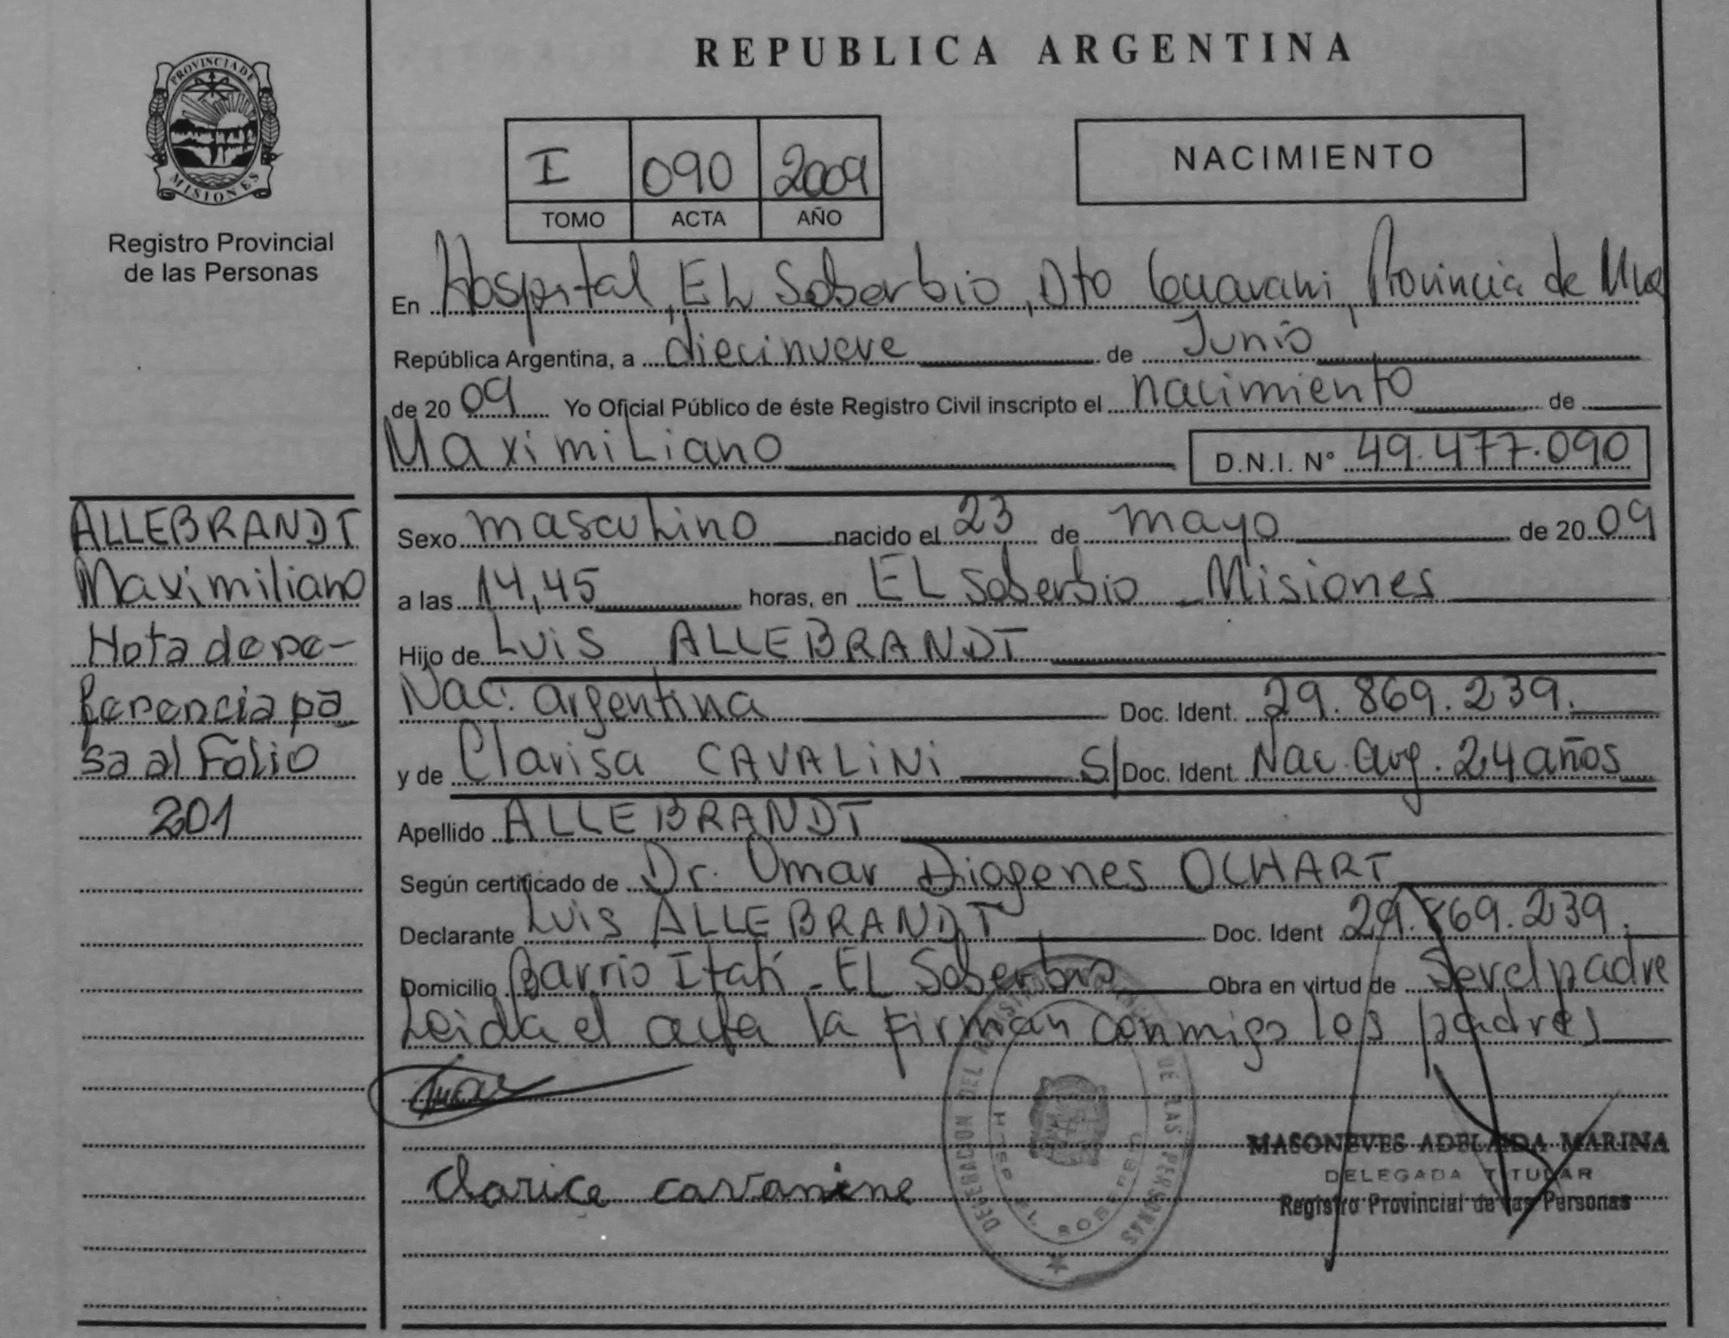 REPUBLICA ARGENTINA
PROVINCIA DE
MISIONES
Registro Provincial
de las Personas
I 090 2009
TOMO ACTA AÑO
NACIMIENTO
En Hospital, EL Soberbio, Dto Guarani, Provincia de
República Argentina, a diecinueve de Junio
de 2009 Yo Oficial Público de éste Registro Civil inscripto el nacimiento de
Maximiliano D.N.I. N° 49.477.090
ALLEBRANDT
Maximiliano
Nota de re-
ferencia pa
sa al Folio
201
Sexo masculino nacido el 23 de mayo de 2009
a las 14,45 horas, en EL Soberbio - Misiones
Hijo de Luis ALLEBRANDT
Nac. argentina Doc. Ident. 29.869.239.
y de Clarisa CAVALiNi S/ Doc. Ident. Nac. arg. 24 años
Apellido ALLEBRANDT
Según certificado de Dr. Omar Diogenes OCHART
Declarante Luis ALLEBRANDT Doc. Ident 29.869.239.
Domicilio Barrio Itatí - EL Soberbio Obra en virtud de Ser el padre
Leida el acta la firman conmigo los padres
clarice cavanine
DE LAS PERSONAS
MASONEVES ADELAIDA MARINA
DELEGADA TITULAR
Registro Provincial de las Personas